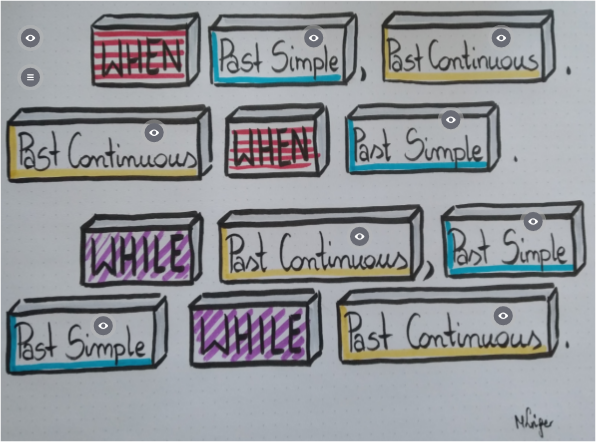 WHEN Past Simple, Past Continuous.
Past Continuous WHEN Past Simple.
WHILE Past Continuous, Past Simple
Past Simple WHILE Past Continuous.